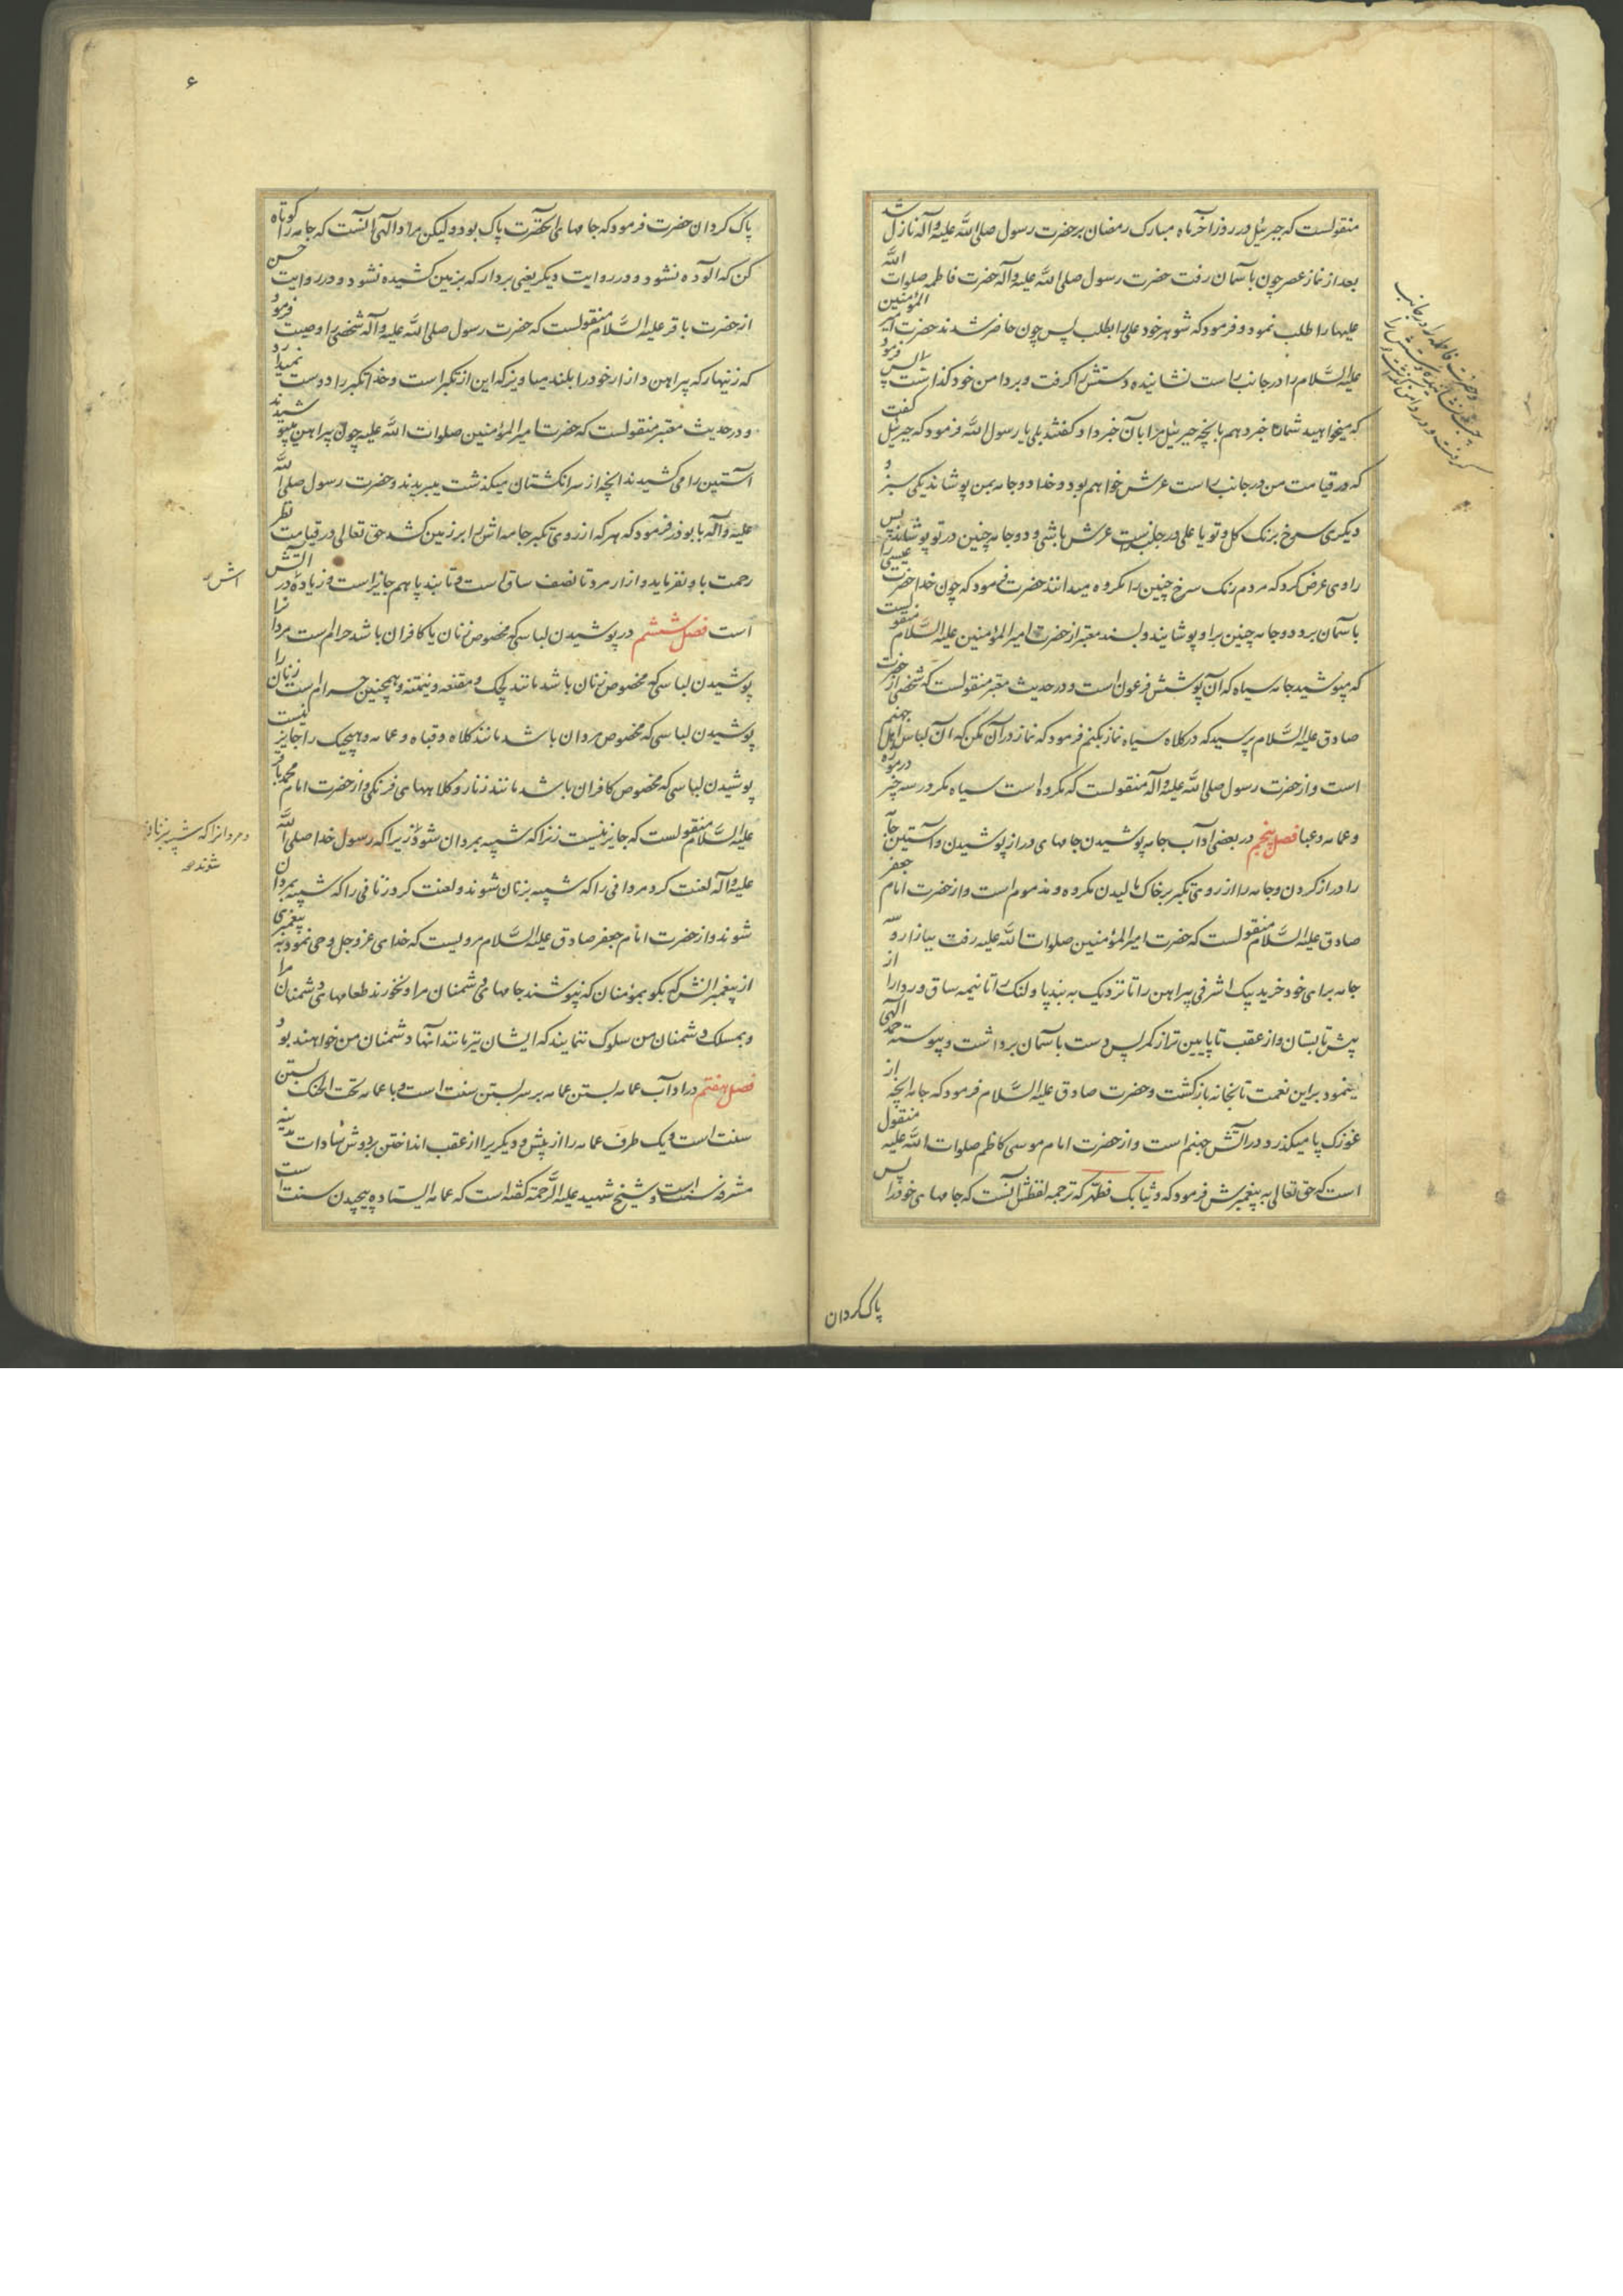 منقولست که جبرئیل در روز آخر ماه مبارک رمضان بر حضرت رسول صلی الله علیه وآله نازل شد
بعد از نماز عصر چون بآسمان رفت حضرت رسول صلی الله علیه وآله حضرت فاطمه صلوات الله
علیها را طلب نمود و فرمود که شوهر خود علی را بطلب پس چون حاضر شدند حضرت امیر المؤمنین
علیه السلام را در جانب راست نشانیده دستش را گرفت و بر دامن خود گذاشت پس فرمود
که میخواهید شما را خبر دهم بانچه جبرئیل مرا بآن خبر داد گفتند بلی یا رسول الله فرمود که جبرئیل گفت
که در قیامت من در جانب راست عرش خواهم بود و خدا دو جامه بمن پوشاند یکی سبز و
دیگری سرخ برنک کل و تو یا علی در جانب راست عرش باشی و دو جامه چنین در تو پوشانند پس
راوی عرض کرد که مردم رنک سرخ چنین را مکروه میدانند حضرت فرمود که چون خدا حضرت عیسی را
بآسمان برد دو جامه چنین بر او پوشانید و بسند معتبر از حضرت امیر المؤمنین علیه السلام منقولست
که مپوشید جامه سیاه که آن پوشش فرعون است و در حدیث معتبر منقولست که شخصی از حضرت
صادق علیه السلام پرسید که در کلاه سیاه نماز بکنم فرمود که نماز در آن مکن که آن لباس اهل جهنم
است و از حضرت رسول صلی الله علیه وآله منقولست که مکروه است سیاه مکر در سه چیز در موزه
و عمامه و عبا فصل پنجم در بعضی آداب جامه پوشیدن جامهای دراز پوشیدن و آستین جامه
را دراز کردن و جامه را از روی تکبر بر خاک مالیدن مکروه و مذموم است و از حضرت امام جعفر
صادق علیه السلام منقولست که حضرت امیر المؤمنین صلوات الله علیه رفت ببازار و سه
جامه برای خود خرید بیک اشرفی پیراهن را تا نزدیک به بند پا و لنک را تا نیمه ساق و ردا را از
پیش تا بستان و از عقب تا پایین تر از کمر پس دست بآسمان برداشت و پیوسته حمد الهی
مینمود بر این نعمت تا بخانه بازگشت و حضرت صادق علیه السلام فرمود که جامه آنچه از
غوزک پا میکذرد در آتش جهنم است و از حضرت امام موسی کاظم صلوات الله علیه منقول
است که حق تعالی به پیغمبرش فرمود که وثیابک فطهر که ترجمه لفظش آنست که جامهای خود را پس
پاک کردان
و حضرت فاطمه را در جانب
چپ نشانیده دستش را
گرفت و در دامن گذاشت
۶
پاک کردان حضرت فرمود که جامهای آنحضرت پاک بود و لیکن مراد الهی آنست که جامه را کوتاه
کن که آلوده نشود و در روایت دیکر یعنی بردار که بزمین کشیده نشود و در روایت حسن
از حضرت باقر علیه السلام منقولست که حضرت رسول صلی الله علیه وآله شخصی را وصیت فرمود
که زنهار که پیراهن و ازار خود را بلند میاویز که این از تکبر است و خدا تکبر را دوست نمیدارد
و در حدیث معتبر منقولست که حضرت امیر المؤمنین صلوات الله علیه چون پیراهن میپوشیدند
آستین را می کشیدند آنچه از سر انکشتان میکذشت میبریدند و حضرت رسول صلی الله
علیه وآله بابوذر فرمود که هر که از روی تکبر جامه اش را بر زمین کشد حق تعالی در قیامت نظر
رحمت باو نفرماید و ازار مرد تا نصف ساق است و تا بند پا هم جایز است و زیاده در آتش
است فصل ششم در پوشیدن لباسی که مخصوص زنان یا کافران باشد حرام است مردان را
پوشیدن لباسی که مخصوص زنان باشد مانند لچک و مقنعه و نیمتنه و همچنین حرام است زنان را
پوشیدن لباسی که مخصوص مردان باشد مانند کلاه و قباه و عمامه و هیچیک را جایز نیست
پوشیدن لباسی که مخصوص کافران باشد مانند زنار و کلاههای فرنکی و از حضرت امام محمد باقر
علیه السلام منقولست که جایز نیست زنرا که شبیه بمردان شود زیرا که رسول خدا صلی الله
علیه وآله لعنت کرد مردانی را که شبیه بزنان شوند و لعنت کرد زنانی را که شبیه بمردان
شوند و از حضرت امام جعفر صادق علیه السلام مرویست که خدای عز و جل وحی نمود به پیغمبری
از پیغمبرانش که بکو بمؤمنان که نپوشند جامهای دشمنان مرا و نخورند طعامهای دشمنان مرا
و بمسلک دشمنان من سلوک ننمایند که ایشان نیز مانند آنها دشمنان من خواهند بود
فصل هفتم در آداب عمامه بستن عمامه بر سر بستن سنت است و با عمامه تحت الحنک بستن
سنت است و یک طرف عمامه را از پیش و دیکریرا از عقب انداختن بر دوش سادات مدینه
مشرفه سنت است و شیخ شهید علیه الرحمة کفته است که عمامه ایستاده پیچیدن سنت است
اش
و مردانرا که شبیه بزنان
شوند صح